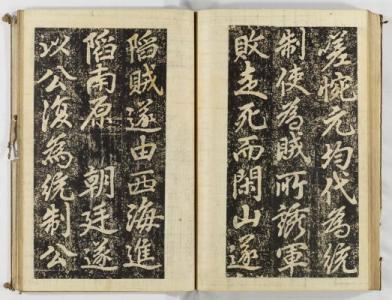 嗟惋元均代為統
制使為賊所誘軍
敗走死而閑山遂
陷賊遂由西海進
陷南原 朝廷遂
以公復為統制公